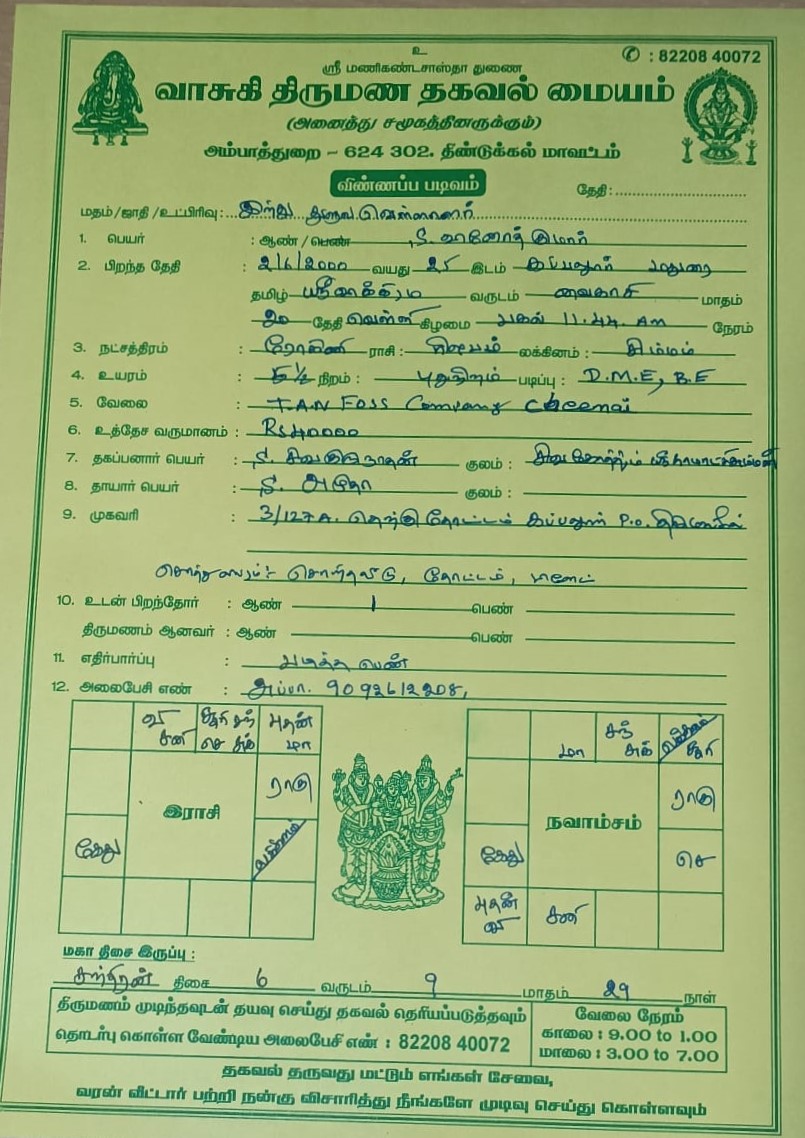 உ
ஸ்ரீ மணிகண்டசாஸ்தா துணை
✆ : 82208 40072
வாசுகி திருமண தகவல் மையம்
(அனைத்து சமூகத்தினருக்கும்)
அம்பாத்துறை – 624 302. திண்டுக்கல் மாவட்டம்
விண்ணப்ப படிவம்
தேதி:
மதம்/ஜாதி/உட்பிரிவு: இந்து
1. பெயர் : ஆண் / பெண் குமார்
2. பிறந்த தேதி : 2/6/2000 வயது 25 இடம் கப்பலூர் மதுரை
தமிழ் வருடம் வைகாசி மாதம்
20 தேதி வெள்ளி கிழமை பகல் 11.44. AM நேரம்
3. நட்சத்திரம் : ரோகிணி ராசி : ரிஷபம் லக்கினம் : சிம்மம்
4. உயரம் : 5½ நிறம் : புதுநிறம் படிப்பு : D.M.E, B.E
5. வேலை : Company
6. உத்தேச வருமானம் : RS 40000
7. தகப்பனார் பெயர் : குலம் :
8. தாயார் பெயர் : குலம் :
9. முகவரி : 3/127A. தோட்டம் கப்பலூர் P.O.
சொந்தவீடு, தோட்டம்,
10. உடன் பிறந்தோர் : ஆண் 1 பெண்
திருமணம் ஆனவர் : ஆண் பெண்
11. எதிர்பார்ப்பு : படித்த பெண்
12. அலைபேசி எண் : அப்பா. 9092612208,
வி சனி சூரி சந் செ சுக் புதன் மா
சந் சுக் மா சூரி
ராகு ராகு
இராசி நவாம்சம்
கேது கேது செ
புதன் வி சனி
மகா திசை இருப்பு :
சந்திரன் திசை 6 வருடம் 9 மாதம் 29 நாள்
திருமணம் முடிந்தவுடன் தயவு செய்து தகவல் தெரியப்படுத்தவும்
தொடர்பு கொள்ள வேண்டிய அலைபேசி எண் : 82208 40072
வேலை நேரம்
காலை : 9.00 to 1.00
மாலை : 3.00 to 7.00
தகவல் தருவது மட்டும் எங்கள் சேவை,
வரன் வீட்டார் பற்றி நன்கு விசாரித்து நீங்களே முடிவு செய்து கொள்ளவும்